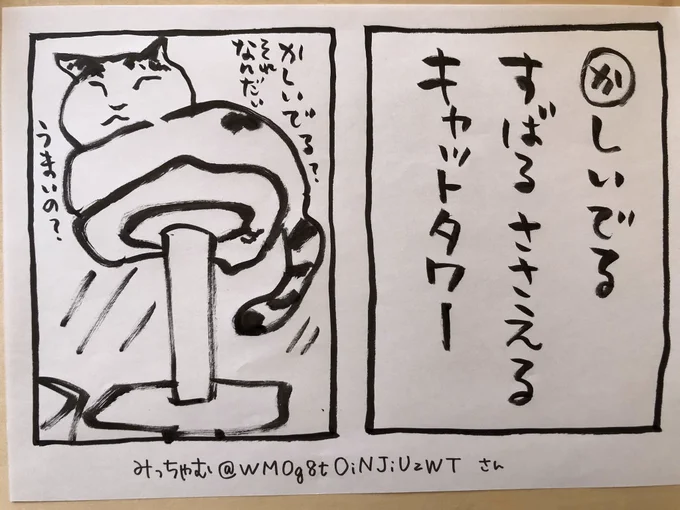 かしいでる
すばるささえる
キャットタワー
かしいでる?
それ なんだい
うまいの?
みっちゃむ@WMOg8tOiNJiUzWT さん